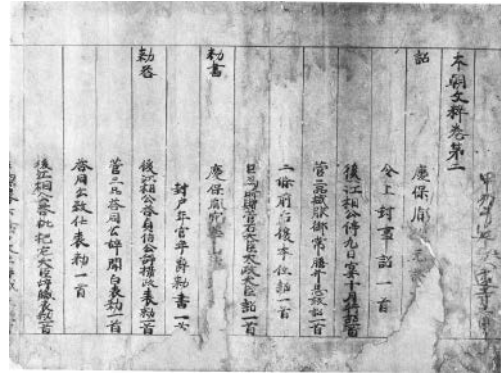 本朝文粹卷第二
詔
慶保胤
令上封事詔一首
後江相公停九日宴十月行詔一首
菅三品減服御常膳并恩赦詔一首
二條前后復本位詔一首
贈菅右大臣太政大臣詔一首
勅書
慶保胤
封戸年官年爵勅書一首
勅荅
後江相公荅貞信公辞攝政表勅一首
菅三品荅同公辞關白表勅一首
荅同公致仕表勅一首
後江相公荅枇杷左大臣辞職表勅一首